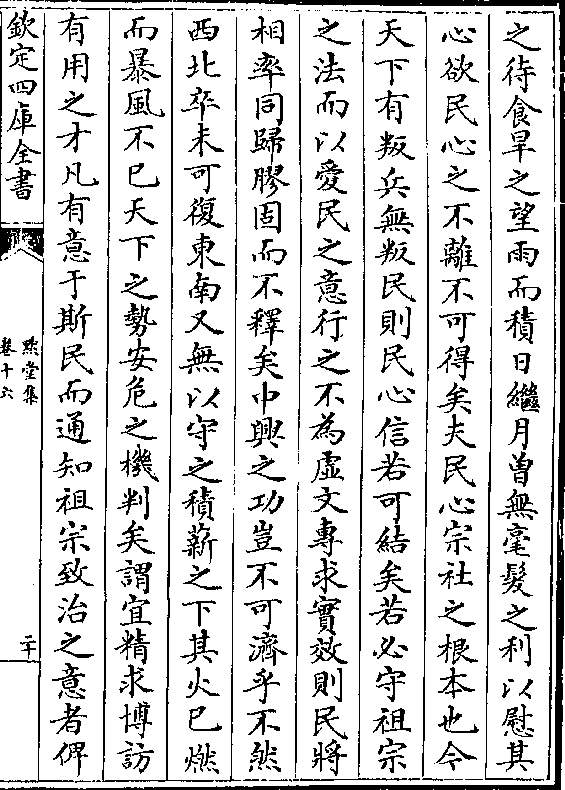 之待食旱之望雨而積日繼月曽無毫髮之利以慰其
心欲民心之不離不可得矣夫民心宗社之根本也今
天下有叛兵無叛民則民心信若可結矣若必守祖宗
之法而以愛民之意行之不為虚文專求實效則民將
相率同歸膠固而不釋矣中興之功豈不可濟乎不然
西北卒未可復東南又無以守之積薪之下其火已燃
而暴風不已天下之勢安危之機判矣謂宜精求博訪
有用之才凡有意于斯民而通知祖宗致治之意者俾
欽定四庫全書
卷十六
默堂集
二十